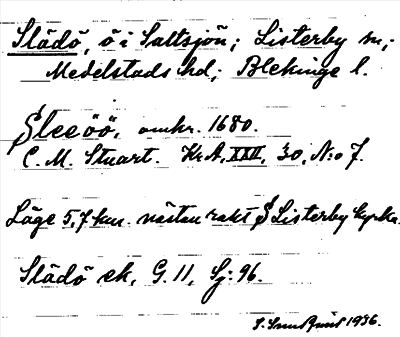 Slädö, ö i Saltsjön; Listerby sn;
Medelstads hd; Blekinge l.
Sleeöö, omkr. 1680.
C. M. Stuart. Kr.A, XXII, 30, N:o 7.
Läge 5,7 km. nästan rakt S Listerby kyrka.
Slädö ek, G. 11, Sj: 96.
1936.